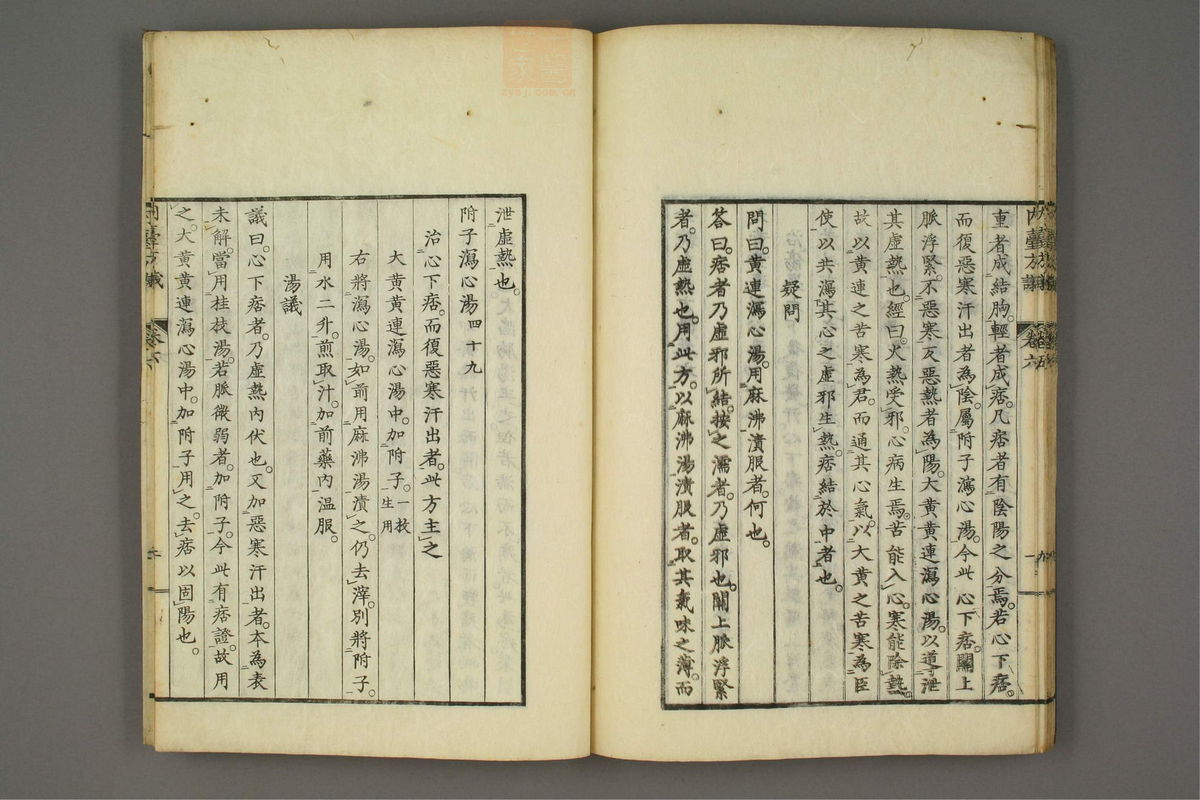 重者成結胸。輕者成痞。凡痞者有陰陽之分焉。若心下痞。
而復惡寒汗出者為陰。屬附子瀉心湯。今此心下痞。關上
脈浮緊。不惡寒反惡熱者為陽。大黃黃連瀉心湯。以導泄
其虛熱也。經曰。火熱受邪。心病生焉。苦能入心。寒能除熱。
故以黃連之苦寒為君。而通其心氣。以大黃之苦寒為臣
使。以共瀉其心之虛邪生熱。痞結於中者也。
疑問
問曰。黃連瀉心湯。用麻沸漬服者。何也。
答曰。痞者乃虛邪所結。按之濡者。乃虛邪也。關上脈浮緊
者。乃虛熱也。用此方。以麻沸湯漬服者。取其氣味之薄。而
泄虛熱也。
附子瀉心湯四十九
治心下痞。而復惡寒汗出者。此方主之
大黃黃連瀉心湯中。加附子。一枚生用
右將瀉心湯。如前用麻沸湯漬之。仍去滓。別將附子。
用水二升。煎取汁。加前藥內溫服。
湯議
議曰。心下痞者。乃虛熱內伏也。又加惡寒汗出者。本為表
未解。當用桂枝湯。若脈微弱者。加附子。今此有痞證。故用
之。大黃黃連瀉心湯中。加附子用之。去痞以固陽也。
內臺方議
卷六